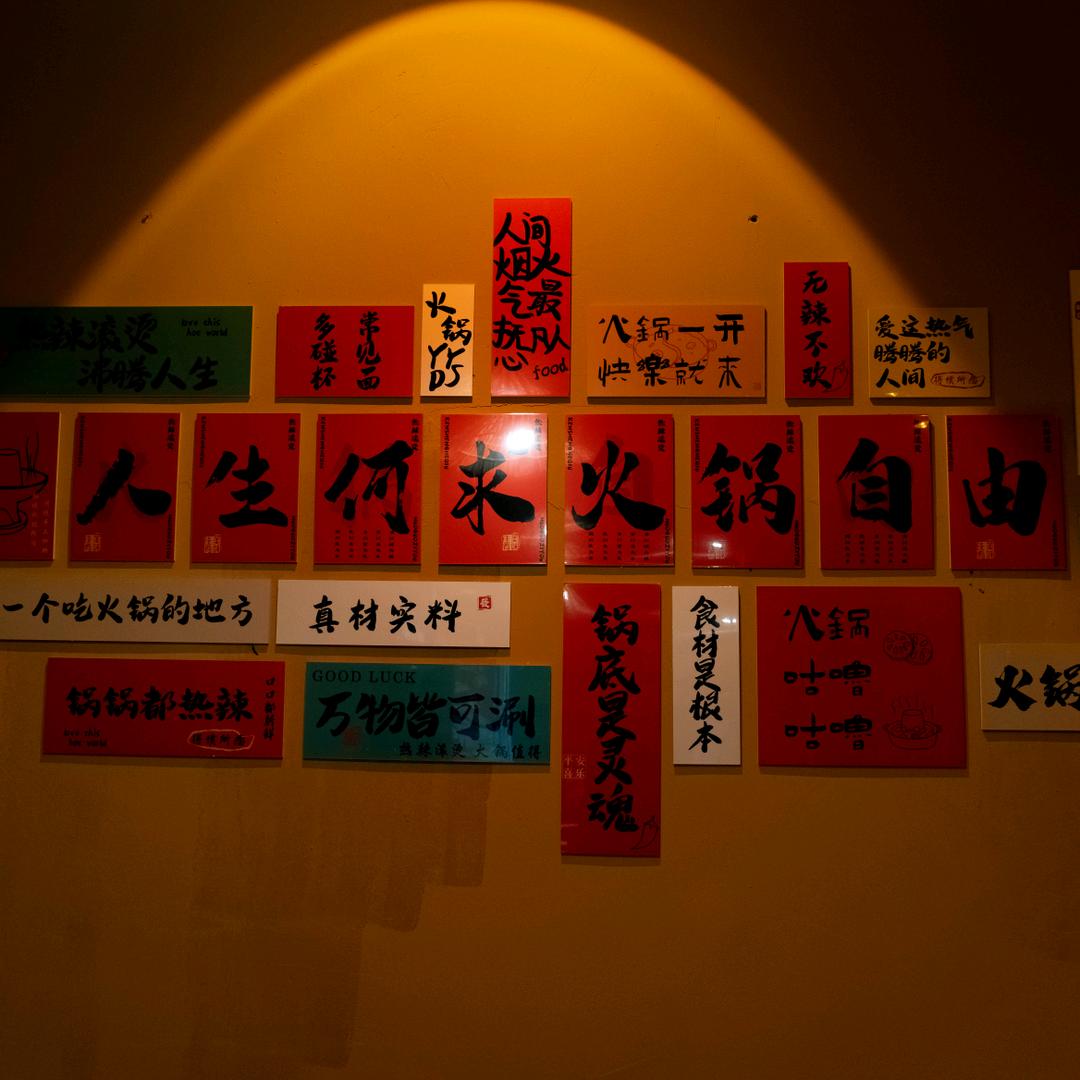 辣滚烫
love this
hot world
沸腾人生
常见面
多碰杯
火锅
YYDS
人间
烟火
气最
抚凡
心
food
火鍋一开
快樂就来
无辣不欢
爱这热气
腾腾的
人间
人
生
何
求
火
锅
自
由
一个吃火锅的地方
真材实料
發
锅锅都热辣
love this
hot world
GOOD LUCK
万物皆可涮
热辣滚烫 火锅值得
锅底是灵魂
平安
喜乐
食材是根本
火鍋
咕噜
咕噜
火锅